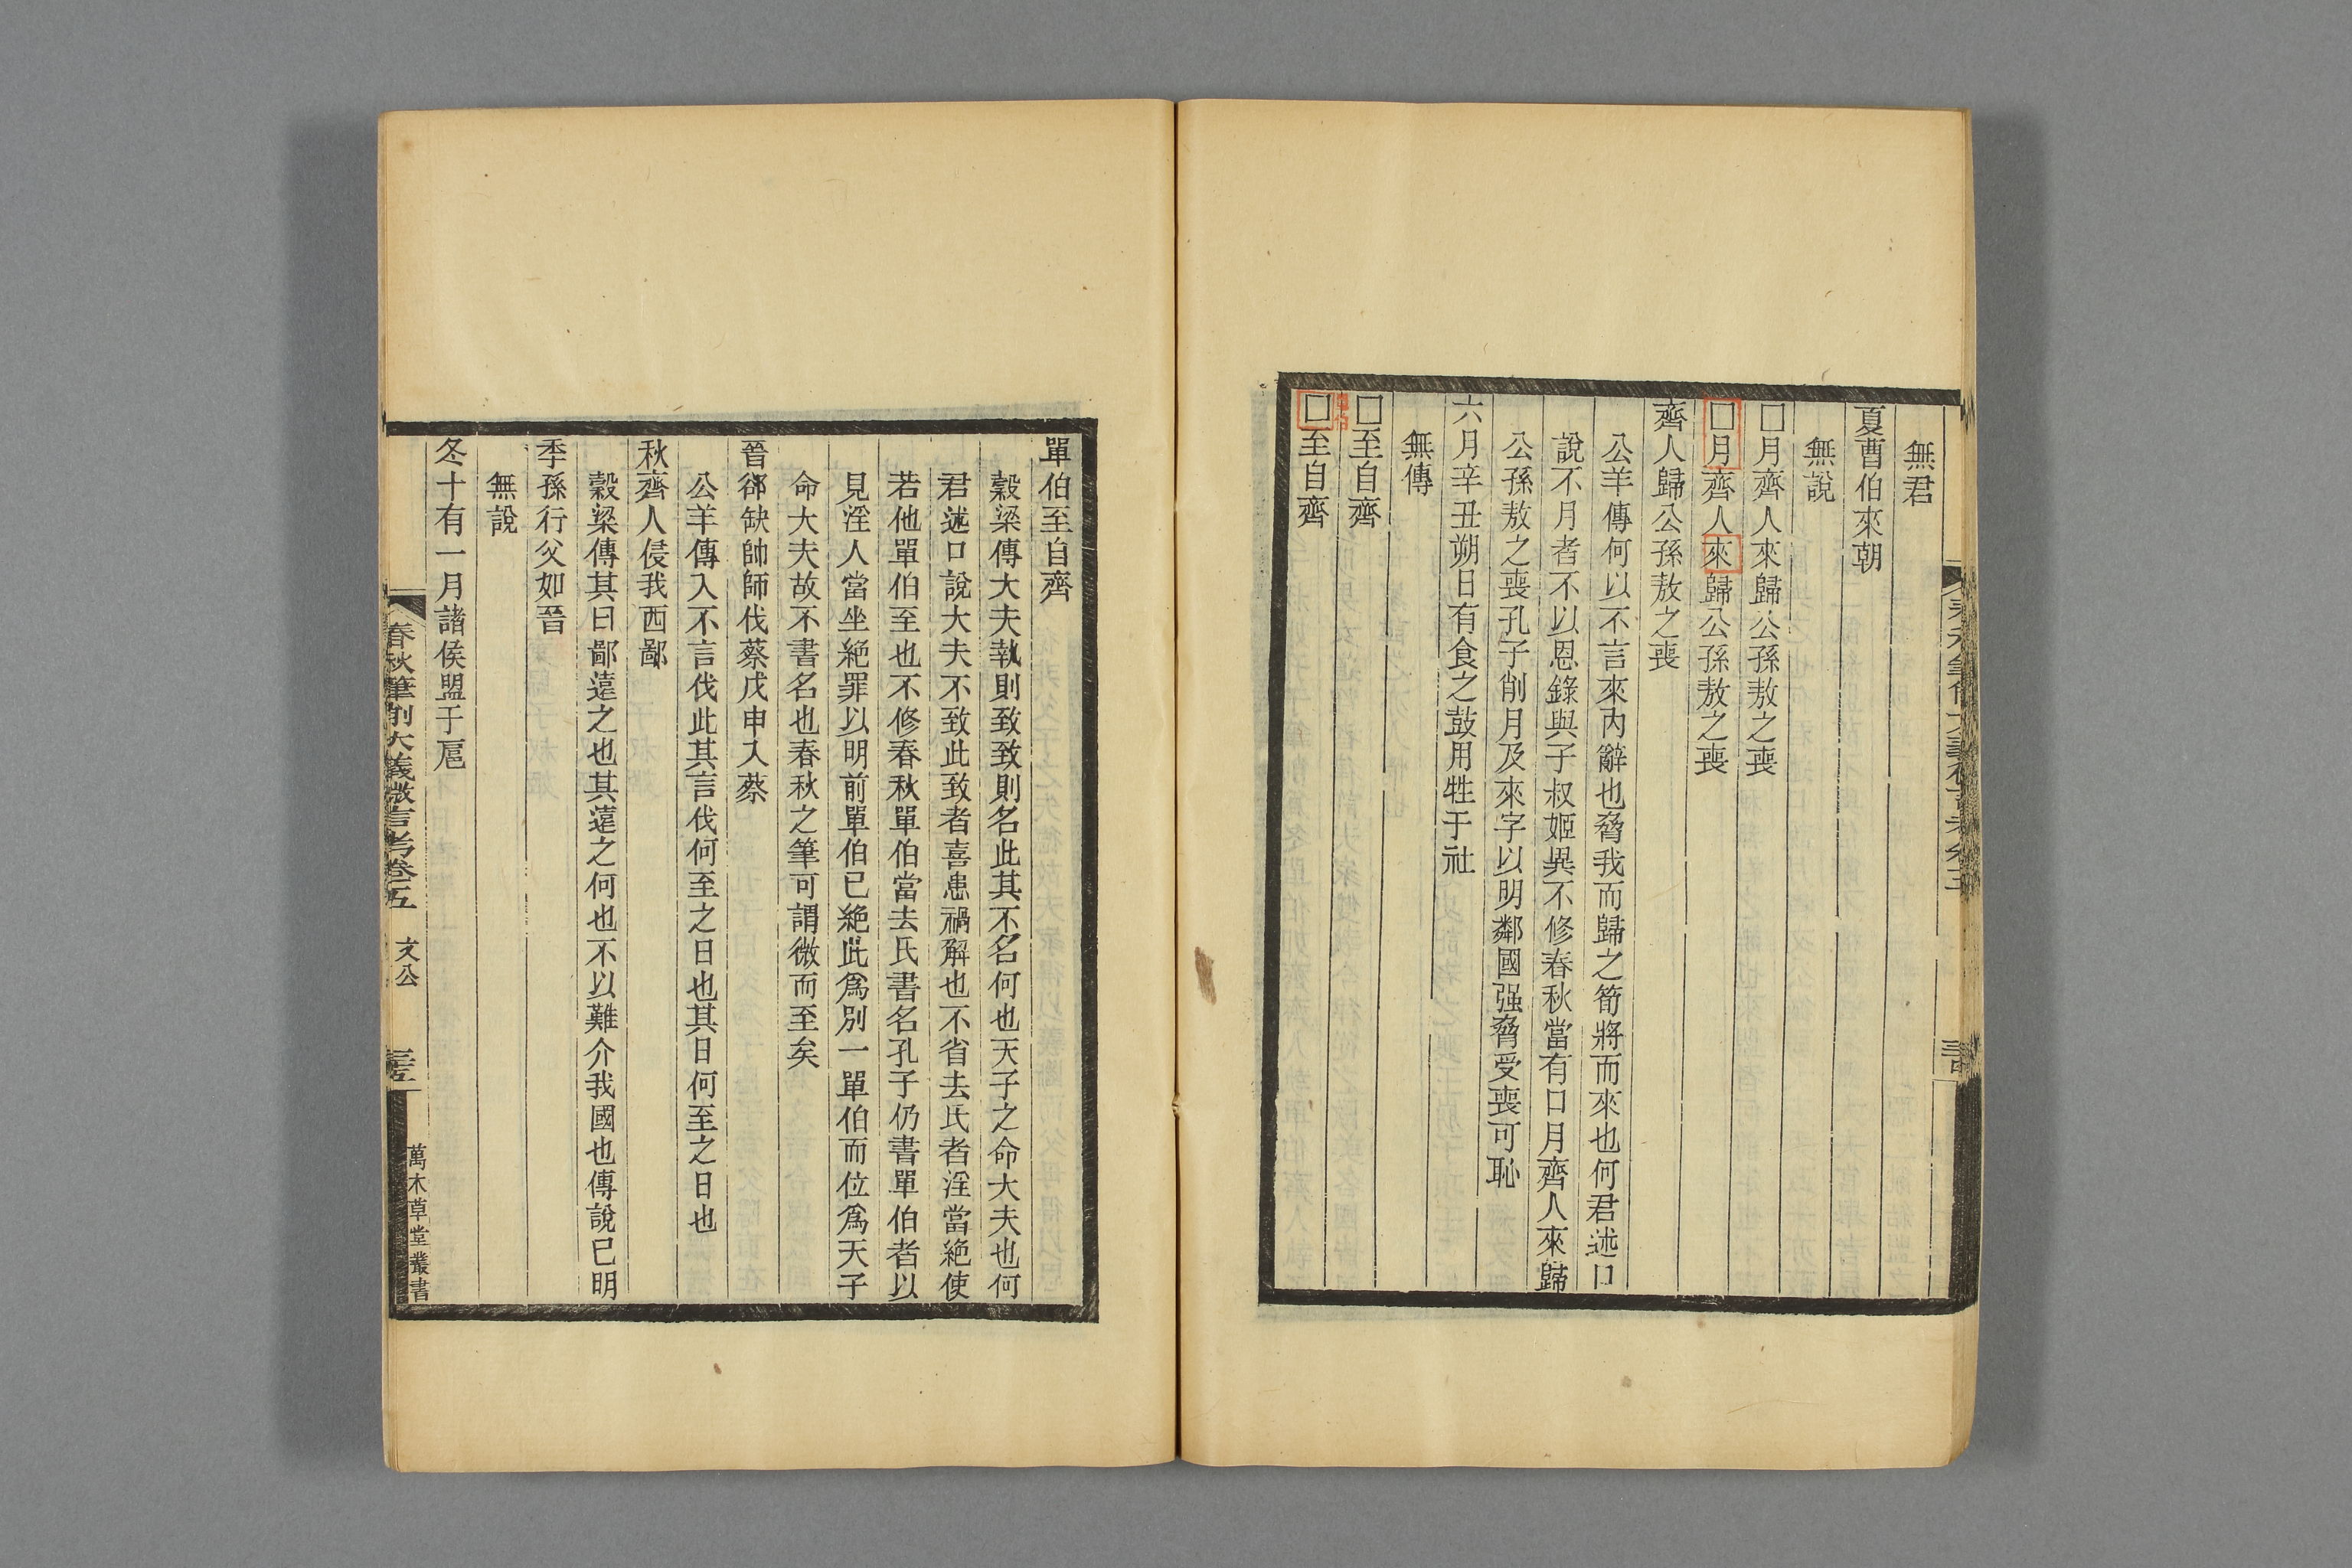 無君
夏曹伯來朝
無說
□月齊人來歸公孫敖之喪
□月齊人來歸公孫敖之喪
齊人歸公孫敖之喪
公羊傳何以不言來內辭也脅我而歸之筍將而來也何君述口
說不月者不以恩錄與子叔姬異不修春秋當有口月齊人來歸
公孫敖之喪孔子削月及來字以明鄰國强脅受喪可恥
六月辛丑朔日有食之鼓用牲于社
無傳
□至自齊
□至自齊
單伯至自齊
穀梁傳大夫執則致致則名此其不名何也天子之命大夫也何
君述口說大夫不致此致者喜患禍解也不省去氏者淫當絕使
若他單伯至也不修春秋單伯當去氏書名孔子仍書單伯者以
見淫人當坐絕罪以明前單伯已絕此爲別一單伯而位爲天子
命大夫故不書名也春秋之筆可謂微而至矣
晉郤缺帥師伐蔡戊申入蔡
公羊傳入不言伐此其言伐何至之日也其日何至之日也
秋齊人侵我西鄙
穀梁傳其曰鄙遠之也其遠之何也不以難介我國也傳說已明
季孫行父如晉
無說
冬十有一月諸侯盟于扈
春秋筆削大義微言考卷五
文公
萬木草堂叢書